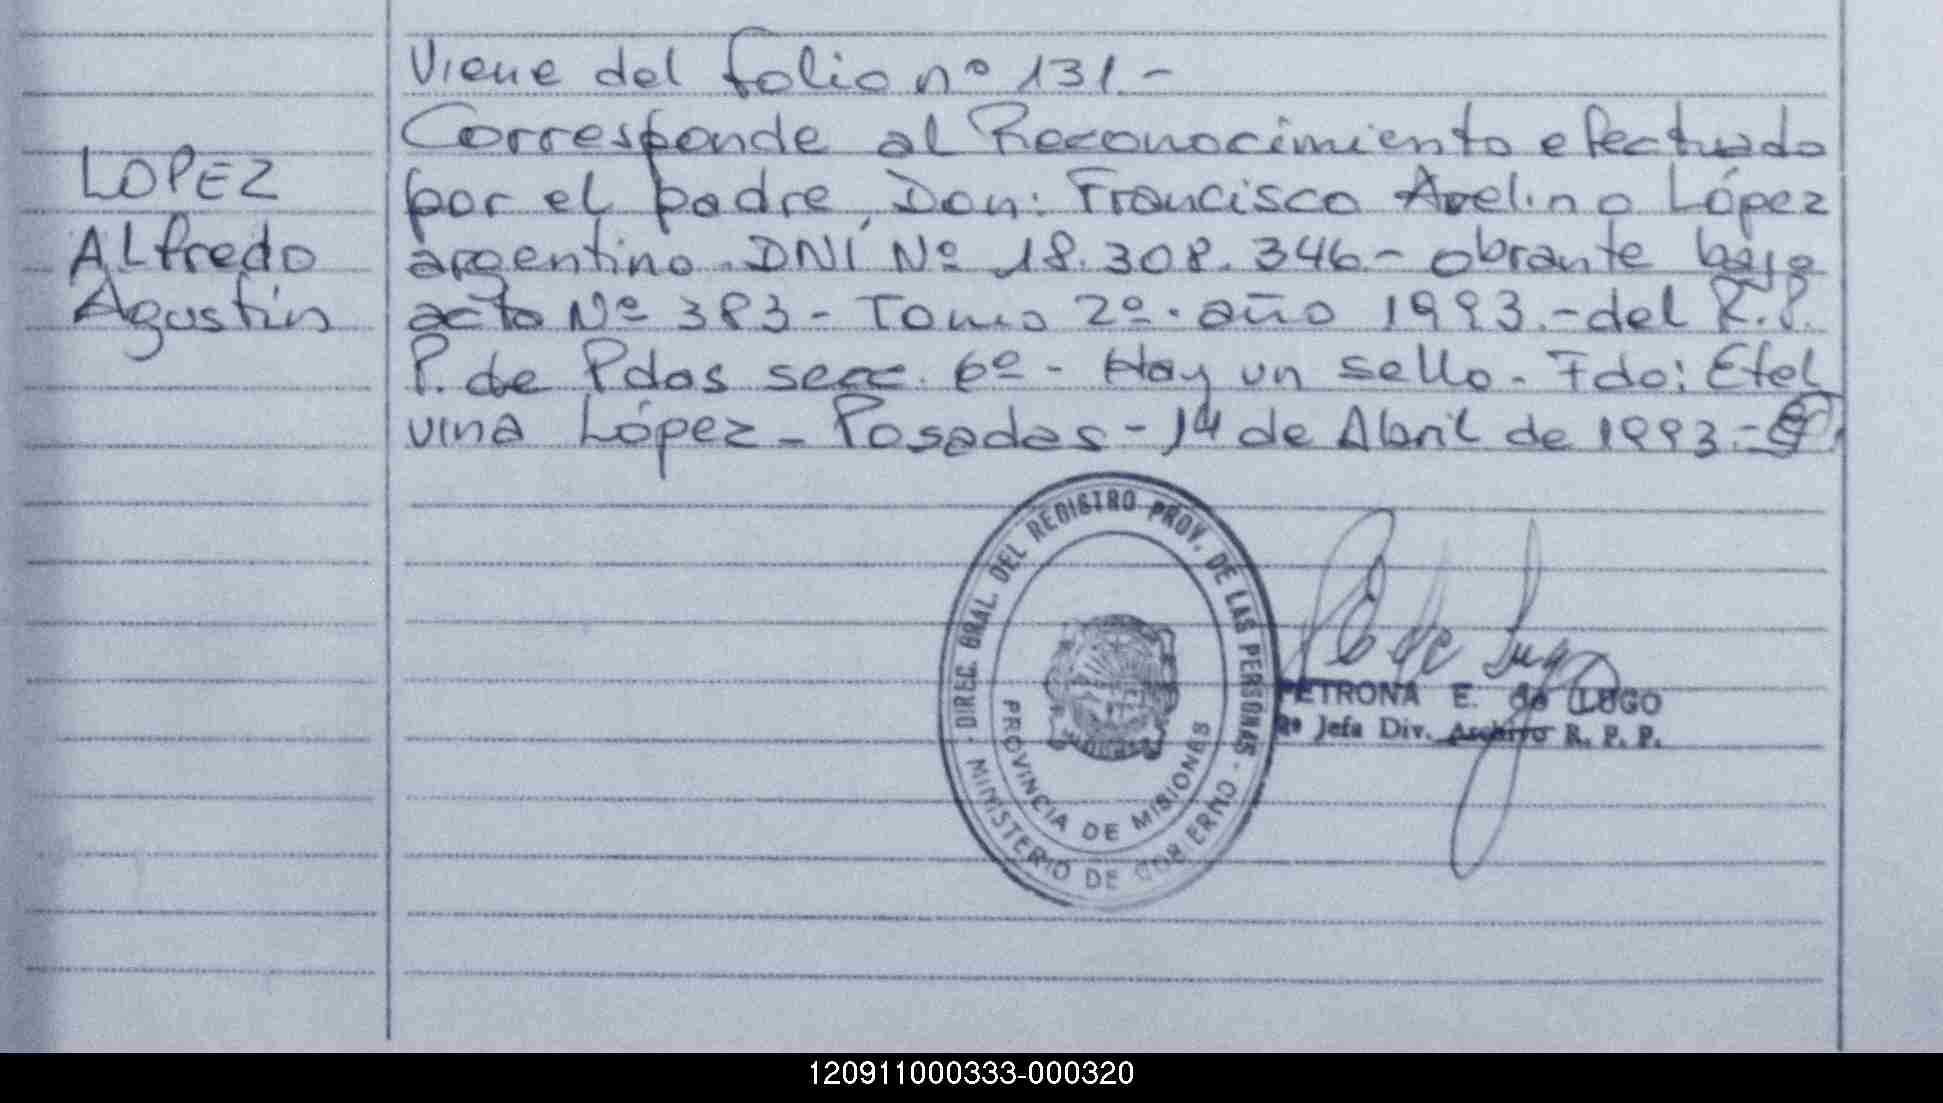 Viene del folio nº 131.-
Corresponde al Reconocimiento efectuado
por el padre, Don: Francisco Avelino López
argentino. DNI Nº 18.308.346.- obrante bajo
acta Nº 383- Tomo 2º. año 1993.- del R.P.
P. de Pdas secc. 6º - Hay un sello. Fdo: Etel
vina López - Posadas - 14 de Abril de 1993.-
LOPEZ
ALfredo
Agustín
DIREC. GRAL. DEL REGISTRO PROV. DE LAS PERSONAS
PROVINCIA DE MISIONES
MINISTERIO DE GOBIERNO
PETRONA E. de LUGO
2º Jefa Div. Archivo R. P. P.
120911000333-000320